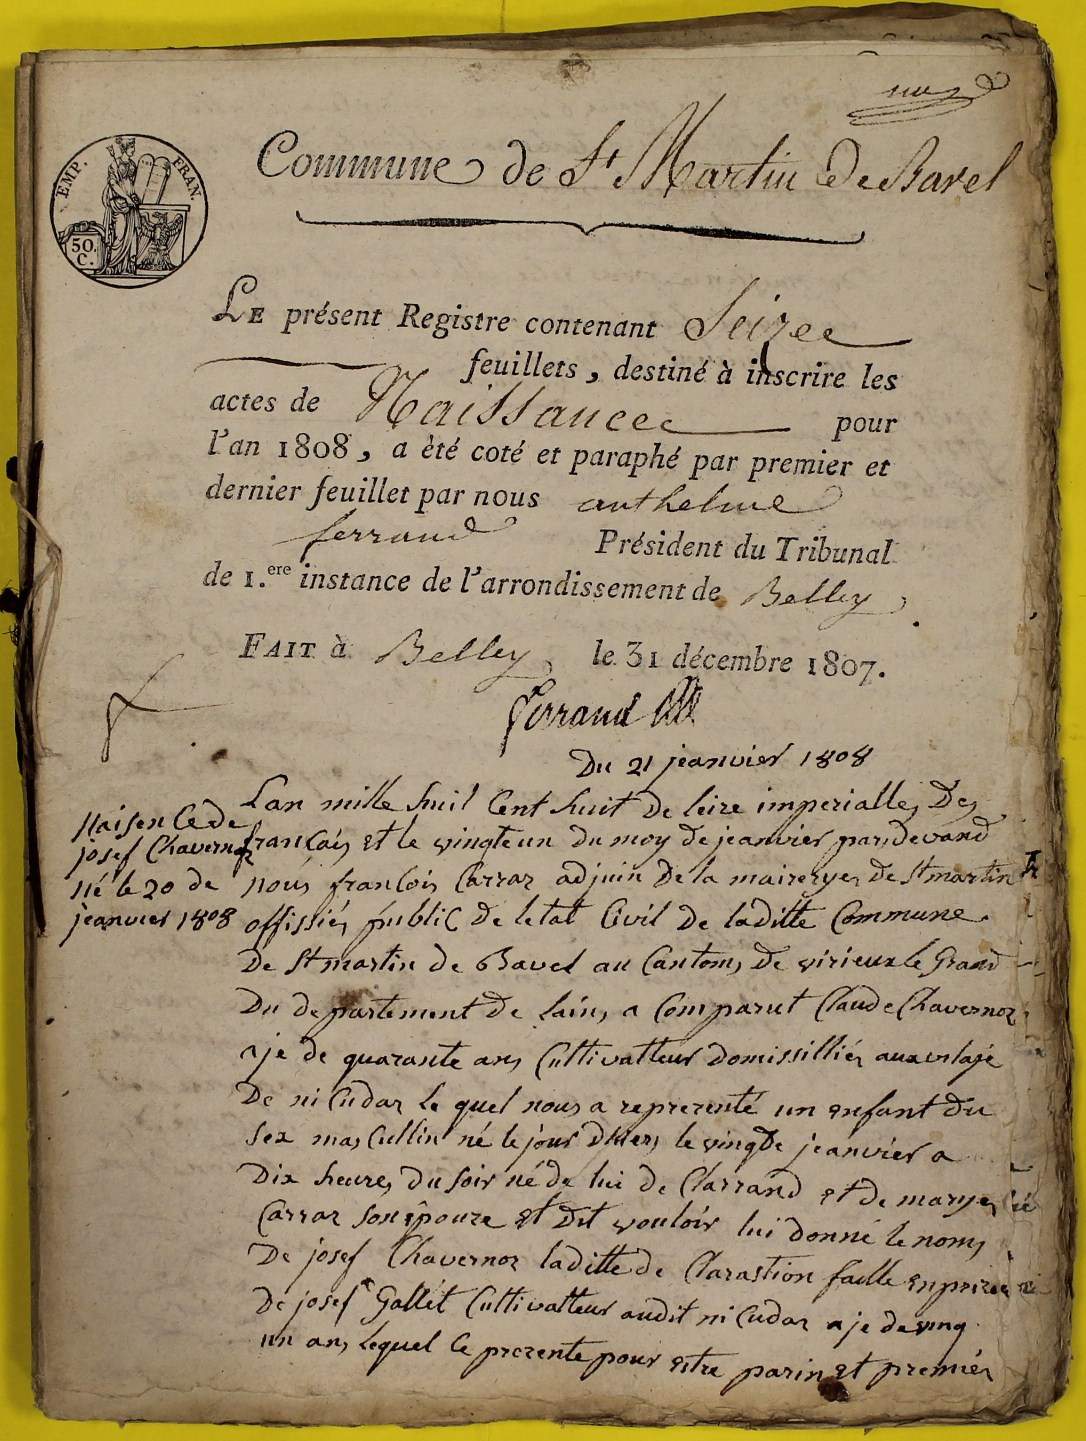 EMP. FRAN.
50. C.
Commune de St Martin de Bavel
LE présent Registre contenant Seize
feuillets, destiné à inscrire les
actes de Naissance pour
l'an 1808, a èté coté et paraphé par premier et
dernier feuillet par nous anthelme
ferrand Président du Tribunal
de 1.ere instance de l'arrondissement de Belley,
FAIT à Belley, le 31 décembre 1807.
ferrand
Du 21 jeanvier 1808
Naisence de
josef Chavernoz
né le 20 de
jeanvier 1808
Lan mille huil Cent huit de leire imperialle, Des
francais et le vingteun du moy de jeanvier par devand
nous francois Carraz adjuin De la maireye, de St martin
offissiés public de letat Civil de laditte Commune
De St martin de Bavel au Canton, De virieux le Grand
Du departement De lain, a Comparut Claude Chavernoz
aje de quarante ans Cultivatteur domissillié, aux vilaje
De ni Cudaz le quel nous a reprezenté un enfant du
sex masCullin né le jour dhier, le vingDe jeanvier a
Dix heure, Du soir né de lui de Clarrand et de marye,
Carraz son epouze et Dit vouloir lui donné le noms
De josef Chavernoz laditte de Clarastion faitte enprizen
De josef Gallét Cultivatteur audit ni Cudaz aje de ving
un ans lequel Ce prezente pour estre parin et premiér